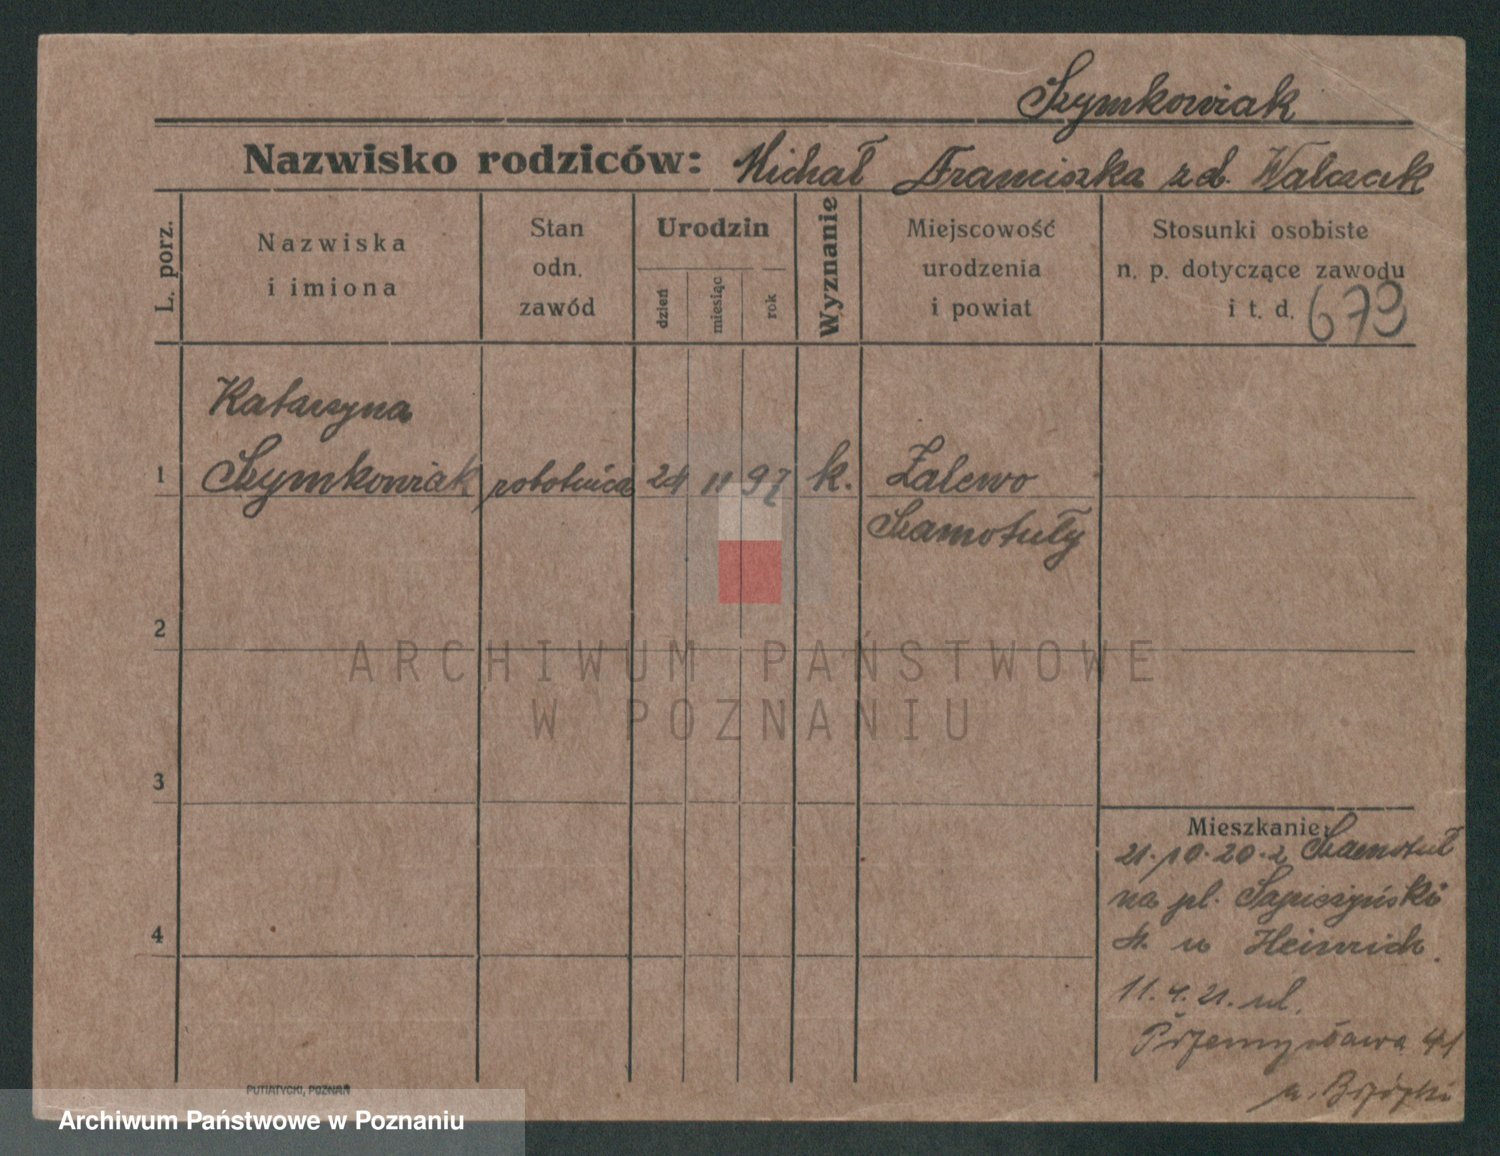 Szymkowiak
Nazwisko rodziców: Michał Franciszka zd. Walczak
L. porz.
Nazwiska
i imiona
Stan
odn.
zawód
Urodzin
dzień
miesiąc
rok
Wyznanie
Miejscowość
urodzenia
i powiat
Stosunki osobiste
n. p. dotyczące zawodu
i t. d. 673
Katarzyna
1 Szymkowiak robotnica 24 11 97 k. Zalewo
Szamotuły
2
ARCHIWUM PAŃSTWOWE
W POZNANIU
3
4
Mieszkanie:
21.10.20 z Szamotuł
na pl. Sapieżyński
u Heinrich.
11.4.21. ul.
Przemysława 41
u.
PUTIATYCKI, POZNAŃ
Archiwum Państwowe w Poznaniu